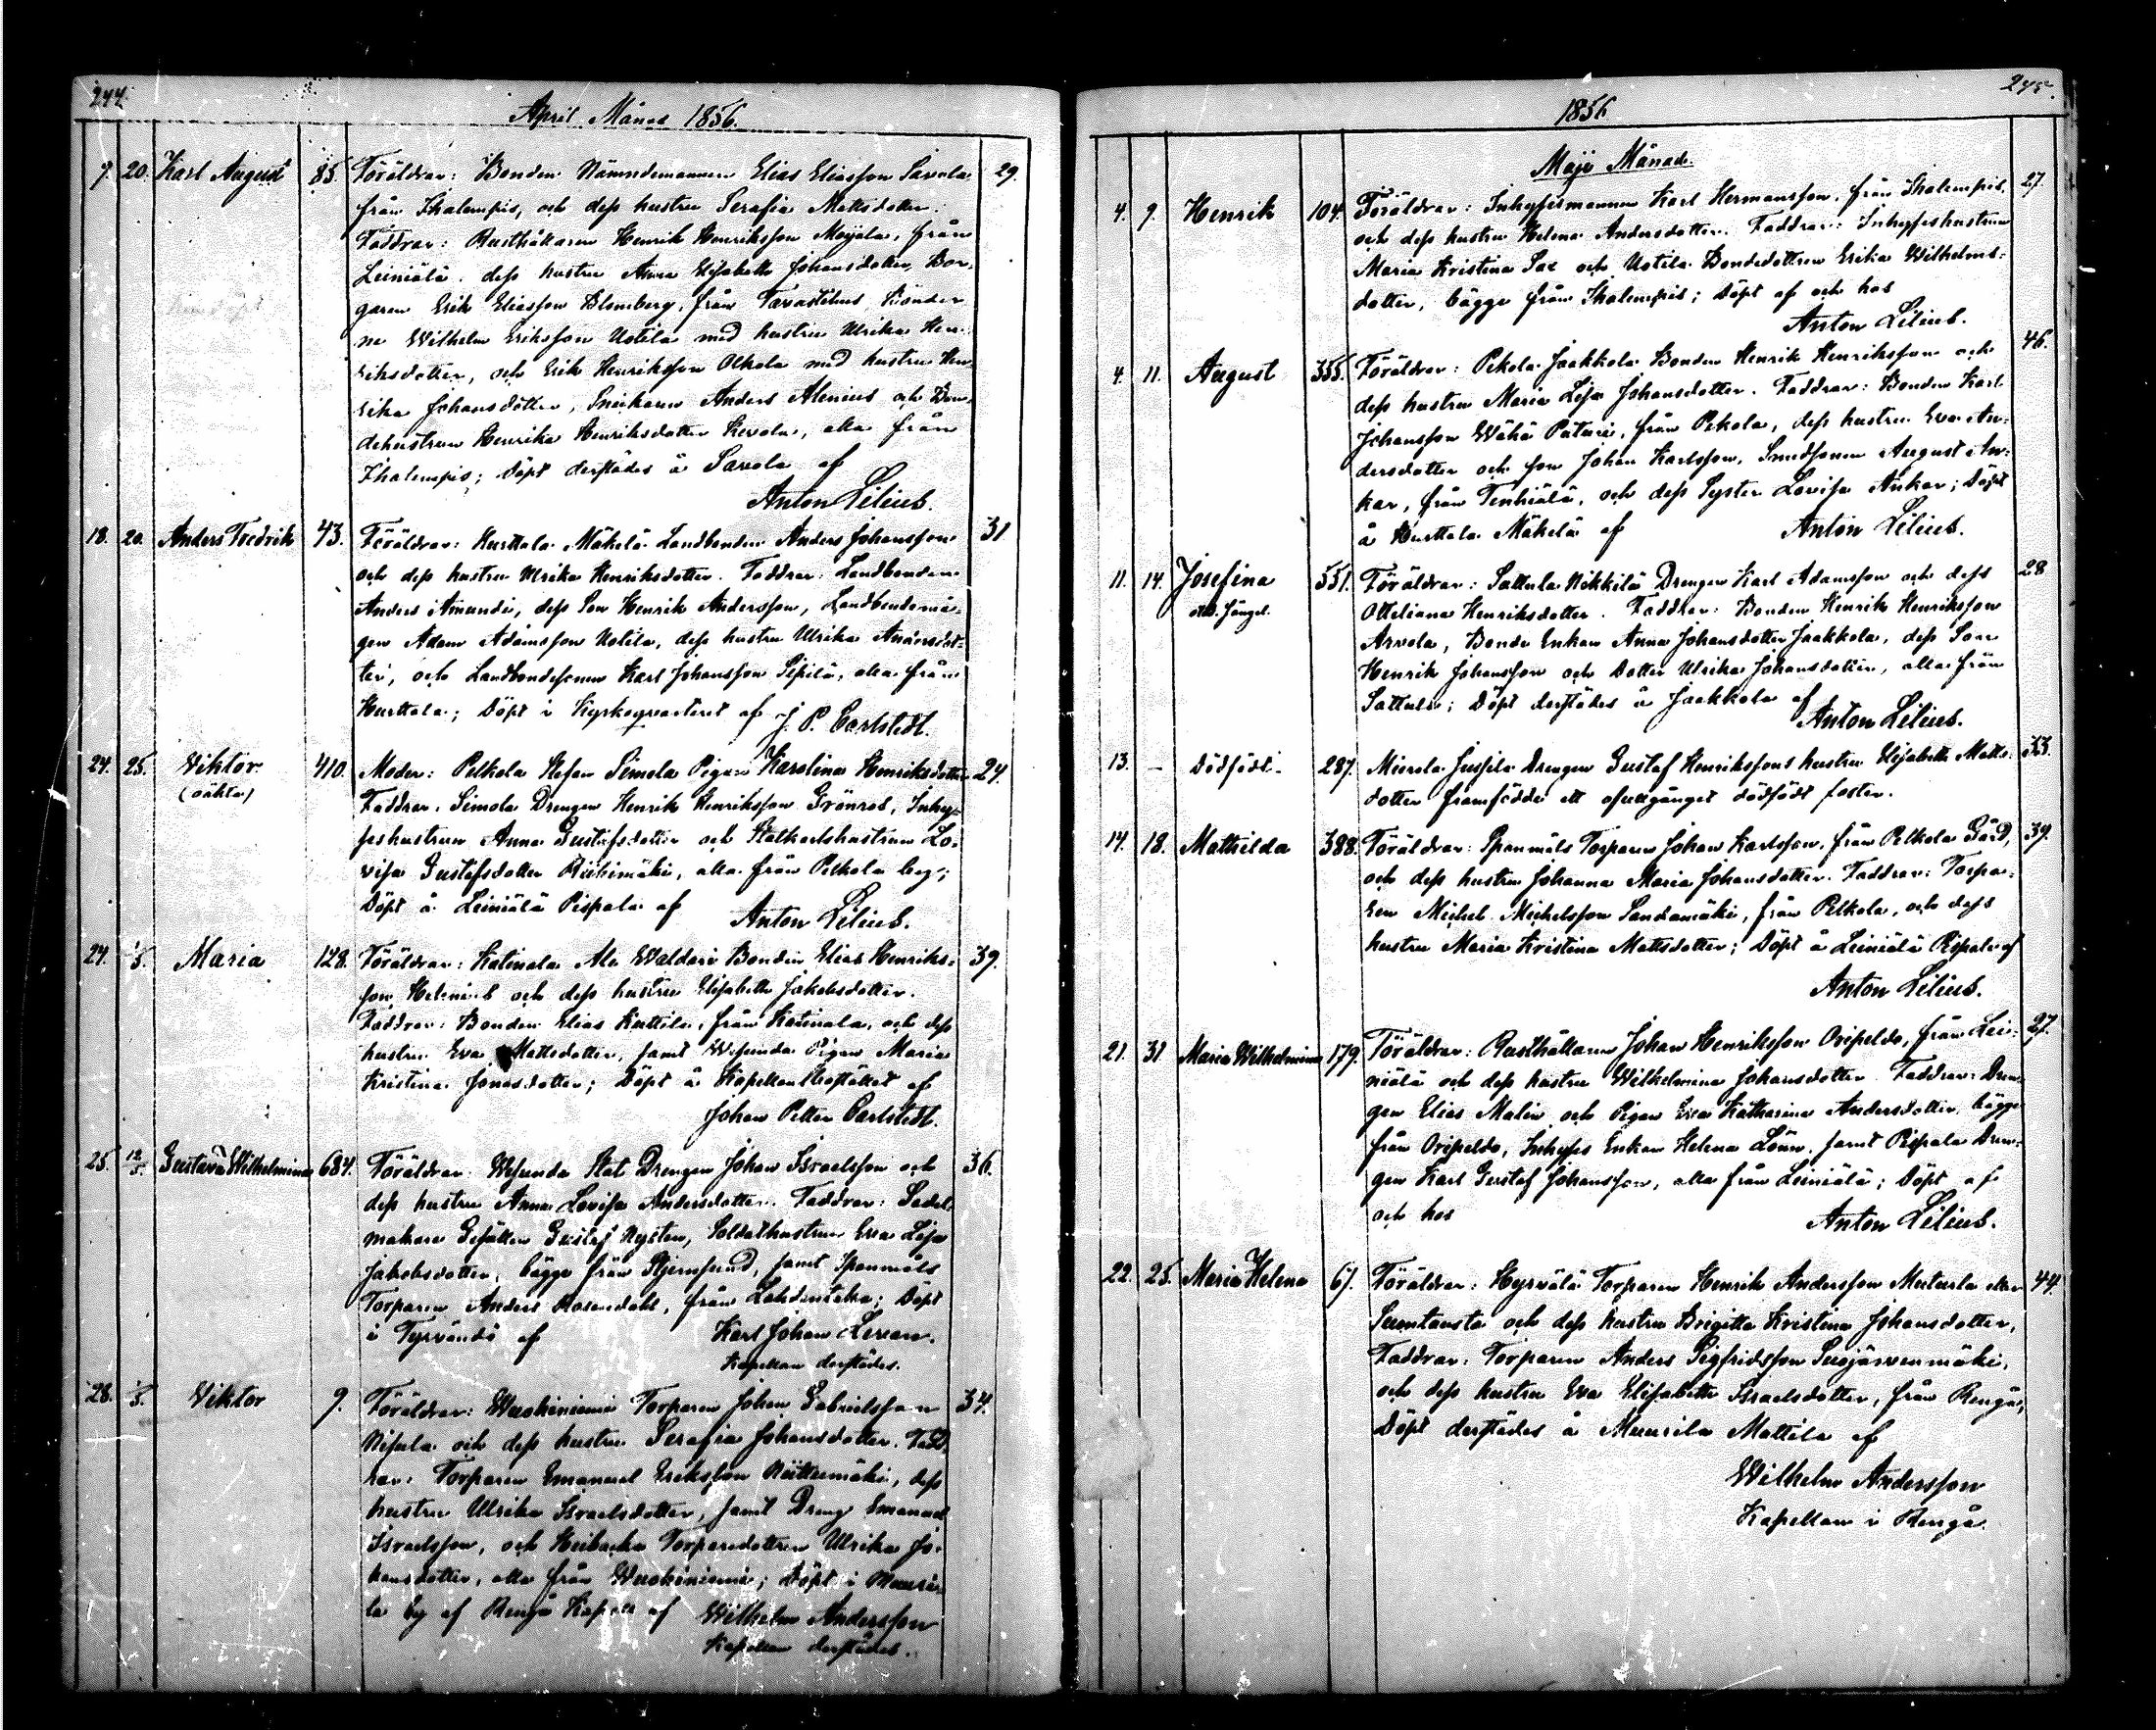 244.
April Månad 1856.
9. 20. Karl August 85. Föräldrar: Bonden Nämndemannen Elias Eliasson Savola 29.
från Ihalempis, och dess hustru Serafia Mattsdotter.
Faddrar: Rusthållaren Henrik Henriksson Moijala, från
Leiniälä, dess hustru Anna Elisabeth Johansdotter, Bor-
garen Erik Eliasson Blomberg, från Tavastehus, Bönder-
ne Wilhelm Eriksson Uotila med hustru Ulrika Hen-
riksdotter, och Erik Henriksson Olkola med hustru Hen-
rika Johansdotter, Snickaren Anders Alenius och Bon-
dehustrun Henrika Henriksdotter Kevola, alla från
Ihalempis; Döpt derstädes å Savola af
Anton Lilius.
18. 20. Anders Fredrik 43. Föräldrar: Hurttala Mäkelä Landbonden Anders Johansson 31
och dess hustru Ulrika Henriksdotter. Faddrar: Landbonden
Anders Amundi, dess Son Henrik Andersson, Landbondemå-
gen Adam Adamsson Uotila, dess hustru Ulrika Andersdot-
ter, och Landbondesonen Karl Johansson Sipilä, alla från
Hurttala; Döpt i Kyrkoqvarteret af J. P. Carlstedt.
24. 25. Viktor 410. Moder: Pelkola Simola Pigan Karolina Henriksdotter 24.
(oäkta) Faddrar: Simola Drengen Henrik Henriksson Grönros, Inhy-
seshustrun Anna Gustafsdotter och Statkarlshustrun Lo-
visa Gustafsdotter Riihimäki, alla från Pelkola by;
Döpt å Leiniälä Pispala af Anton Lilius.
24. 1/5. Maria 128. Föräldrar: Katinala Ala Waldari Bonden Elias Henriks- 39.
son Helenius och dess hustru Elisabeth Jakobsdotter.
Faddrar: Bonden Elias Kuttila, från Katinala, och dess
hustru Eva Mattsdotter, samt Wesunda Pigan Maria
Kristina Jonasdotter; Döpt å Kapellansbostället af
Johan Petter Carlstedt.
25. 12/5. Gustava Wilhelmina 684. Föräldrar: Wesunda Stat Drengen Johan Israelsson och 36.
dess hustru Anna Lovisa Andersdotter. Faddrar: Sadel-
makare Gesällen Gustaf Nysten, Soldathustrun Eva Lisa
Jakobsdotter, bägge från Stjernsund, samt Spanmåls
Torparen Anders Rosendahl, från Lahdentaka; Döpt
i Tyrvändö af Karl Johan Levan.
Kapellan derstädes.
28. 1/5. Viktor 9. Föräldrar: Wuohiniemi Torparen Johan Gabrielsson 34.
Nisula och dess hustru Serafia Johansdotter. Fadd-
rar: Torparen Emanuel Eriksson Niittumäki, dess
hustru Ulrika Israelsdotter, samt Dreng Emanuel
Israelsson, och Torparedottren Ulrika Jo-
hansdotter, alla från Wuohiniemi; Döpt i Muuri-
la by af Rengo Kapell af Wilhelm Andersson
Kapellan derstädes.
245.
1856
Maji Månad.
4. 9. Henrik 104. Föräldrar: Inhysesmannen Karl Hermansson, från Ihalempis, 27.
och dess hustru Helena Andersdotter. Faddrar: Inhyseshustrun
Maria Kristina Sax och Uotila Bondedottren Erika Wilhelms-
dotter, bägge från Ihalempis; Döpt af och hos
Anton Lilius.
4. 11. August 355. Föräldrar: Pekola Jaakkola Bonden Henrik Henriksson och 46.
dess hustru Maria Lisa Johansdotter. Faddrar: Bonden Karl
Johansson Wähä Paturi, från Pekola, dess hustru Eva An-
dersdotter och son Johan Karlsson, Smedsonen August An-
kar, från Tenhiälä, och dess Syster Lovisa Ankar; Döpt
å Hurttala Mäkelä af Anton Lilius.
11. 14. Josefina 551. Föräldrar: Sattula Nikkilä Drengen Karl Adamsson och dess 28
Otteliana Henriksdotter. Faddrar: Bonden Henrik Henriksson
Arvola, Bonde Enkan Anna Johansdotter Jaakkola, dess Son
Henrik Johansson och Dotter Ulrika Johansdotter, alla från
Sattula; Döpt derstädes å Jaakkola af
Anton Lilius.
13. – Dödfödt. 287. Mierola Jussila Drengen Gustaf Henrikssons hustru Elisabeth Matts- 33.
dotter framfödde ett ofullgånget dödfödt foster.
14. 18. Mathilda 388. Föräldrar: Spanmåls Torparen Johan Karlsson, från Pelkola Gård, 39.
och dess hustru Johanna Maria Johansdotter. Faddrar: Torpa-
ren Michel Michelsson Sandamäki, från Pelkola, och dess
hustru Maria Kristina Mattsdotter; Döpt å Leiniälä Pispala af
Anton Lilius.
21. 31. Maria Wilhelmina 179. Föräldrar: Rusthållaren Johan Henriksson Oripeldo, från Lei- 27.
niälä och dess hustru Wilhelmina Johansdotter. Faddrar: Dren-
gen Elias Malin och Pigan Eva Katharina Andersdotter, bägge
från Oripeldo, Inhyses Enkan Helena Lönn, samt Pispala Dren-
gen Karl Gustaf Johansson, alla från Leiniälä; Döpt af
och hos Anton Lilius.
22. 25. Maria Helena 67. Föräldrar: Hyrvälä Torparen Henrik Andersson eller 44.
Suontausta och dess hustru Brigitta Kristina Johansdotter,
Faddrar: Torparen Anders Sigfridsson Suojärvenmäki,
och dess hustru Eva Elisabeth Israelsdotter, från Rengo;
Döpt derstädes å Muurila Mattila af
Wilhelm Andersson
Kapellan i Rengo.